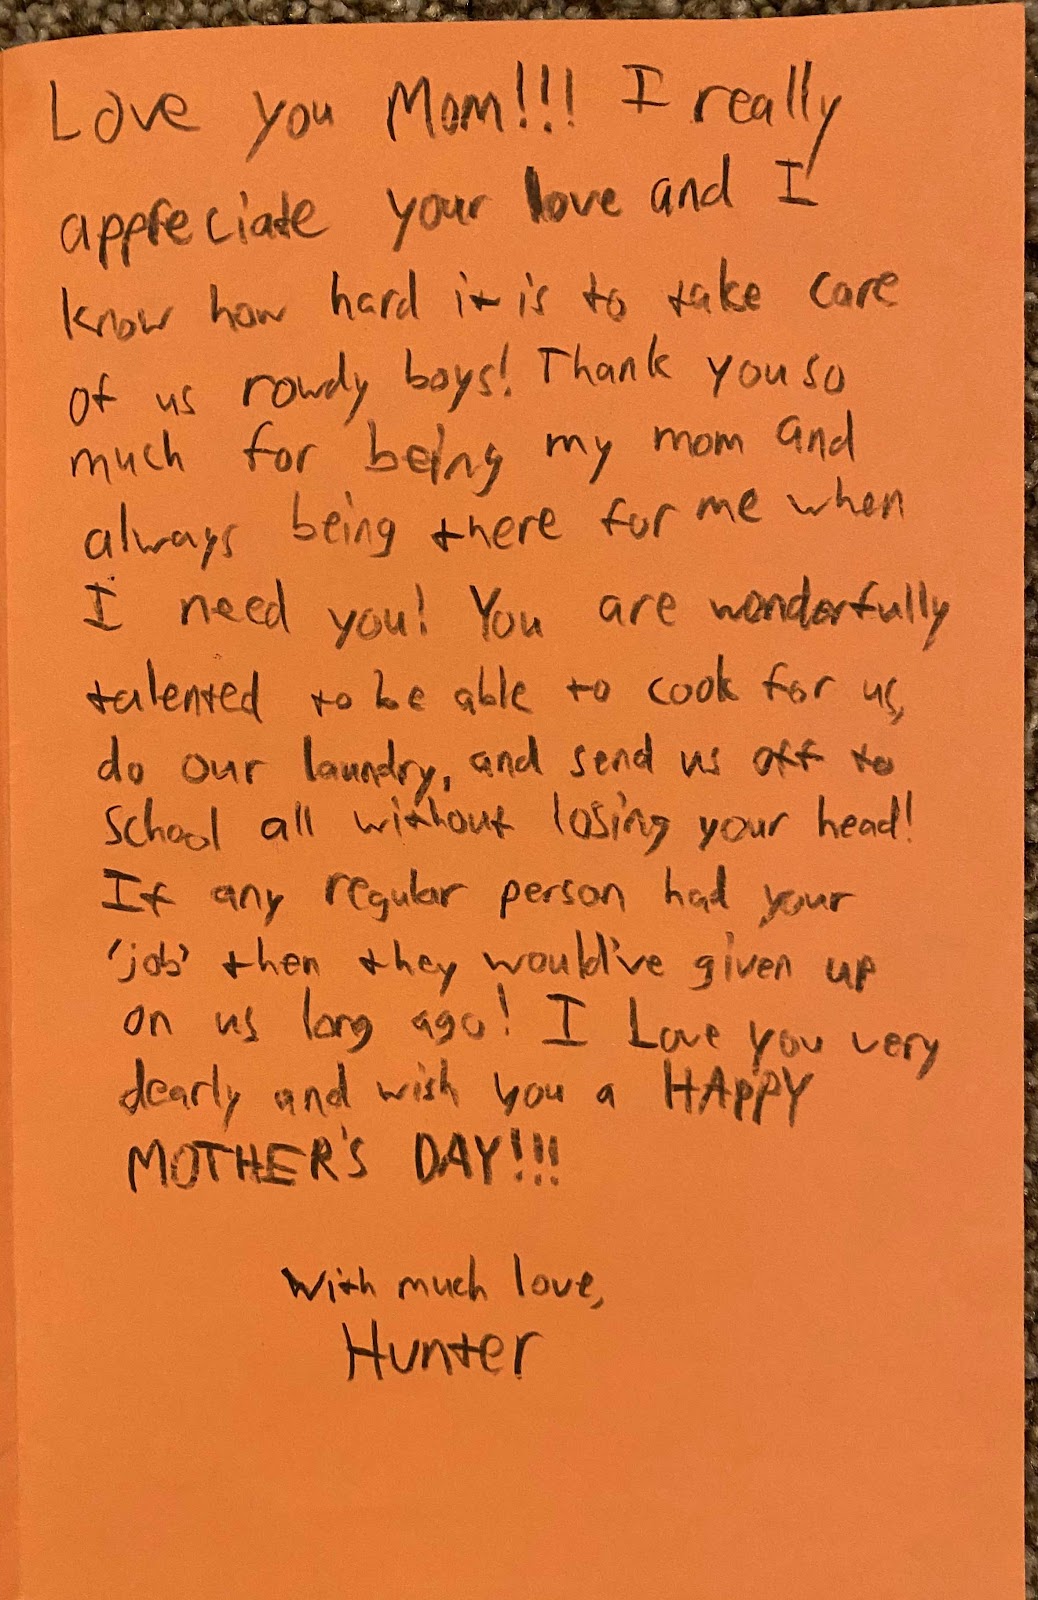 Love you Mom!!! I really
appreciate your love and I
know how hard it is to take care
of us rowdy boys! Thank you so
much for being my mom and
always being there for me when
I need you! You are wonderfully
talented to be able to cook for us,
do our laundry, and send us off to
school all without losing your head!
If any regular person had your
'job' then they would've given up
on us long ago! I Love you very
dearly and wish you a HAPPY
MOTHER'S DAY!!!
With much love,
Hunter